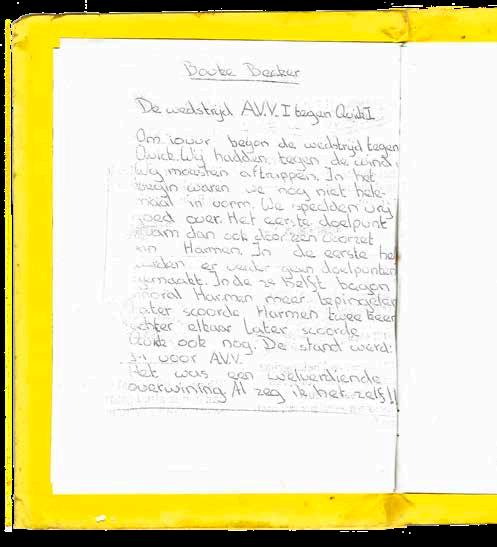 Bouke Bekker
De wedstrijd A.V.V. I tegen Quick I
Om 10 uur begon de wedstrijd tegen
Quick. Wij hadden tegen de wind.
Wij moesten aftrappen. In het
begin waren we nog niet hele-
maal in vorm. We speelden vrij
goed over. Het eerste doelpunt
kwam dan ook door een voorzet
van Harmen. In de eerste
werden er verder geen doelpunten
gemaakt. In de 2e helft begon
vooral Harmen meer te
Later scoorde Harmen twee keer
achter elkaar Later scoorde
Quick ook nog. De stand werd:
voor A.V.V.
Het was een welverdiende
overwinning. Al zeg ik het zelf!!